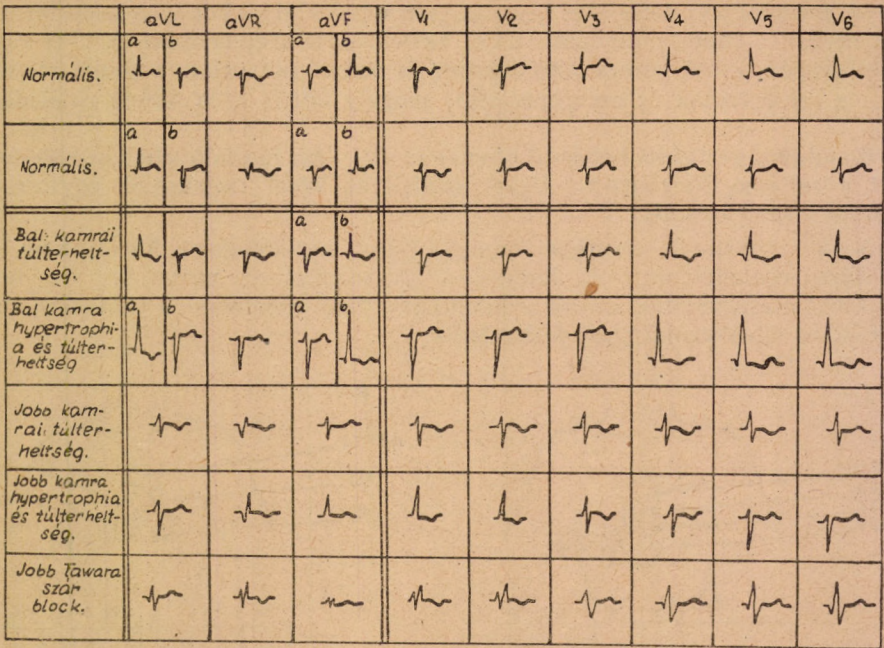 aVL aVR aVF V1 V2 V3 V4 V5 V6
a b a b
Normális.
a b a b
Normális.
a b
Bal kamrai
túlterhelt-
ség.
a b a b
Bal kamra
hypertrophi-
a és túlter-
heltség
Jobb kam-
rai túlter-
heltség.
Jobb kamra
hypertrophia
és túlterhelt-
ség.
Jobb Tawara
szár
block.